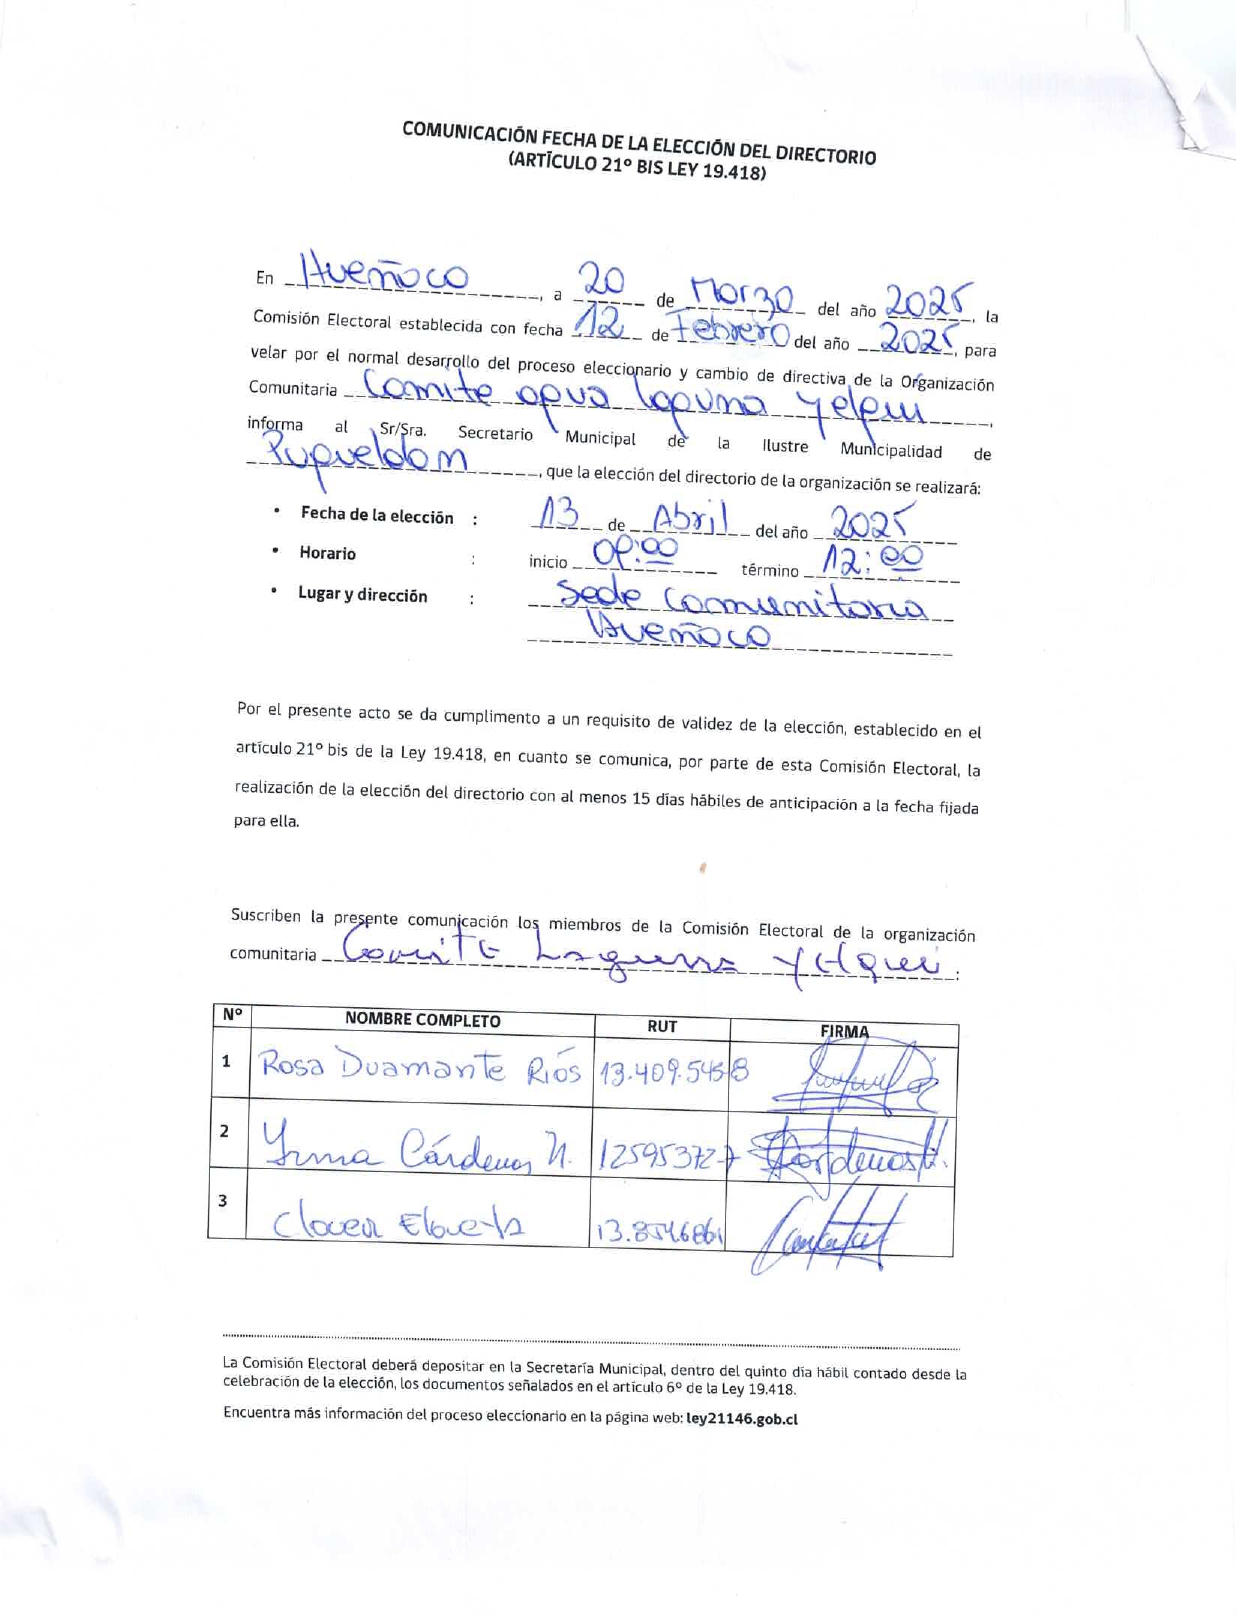 COMUNICACIÓN FECHA DE LA ELECCIÓN DEL DIRECTORIO
(ARTÍCULO 21º BIS LEY 19.418)
En Hueñoco, a 20 de Marzo del año 2025, la
Comisión Electoral establecida con fecha 12 de Febrero del año 2025, para
velar por el normal desarrollo del proceso eleccionario y cambio de directiva de la Organización
Comunitaria Comite agua laguna Yelqui,
informa al Sr/Sra. Secretario Municipal de la Ilustre Municipalidad de
Puqueldon, que la elección del directorio de la organización se realizará:
• Fecha de la elección : 13 de Abril del año 2025
• Horario : inicio 09:00 término 12:00
• Lugar y dirección : Sede Comunitaria
Hueñoco
Por el presente acto se da cumplimento a un requisito de validez de la elección, establecido en el
artículo 21º bis de la Ley 19.418, en cuanto se comunica, por parte de esta Comisión Electoral, la
realización de la elección del directorio con al menos 15 días hábiles de anticipación a la fecha fijada
para ella.
Suscriben la presente comunicación los miembros de la Comisión Electoral de la organización
comunitaria Comite Laguna Yelqui.
Nº NOMBRE COMPLETO RUT FIRMA
1 Rosa Duamante Ríos 13.409.545-8
2 Yrma Cárdenas N. 12595372-7 Cárdenas N.
3
La Comisión Electoral deberá depositar en la Secretaría Municipal, dentro del quinto día hábil contado desde la
celebración de la elección, los documentos señalados en el artículo 6º de la Ley 19.418.
Encuentra más información del proceso eleccionario en la página web: ley21146.gob.cl